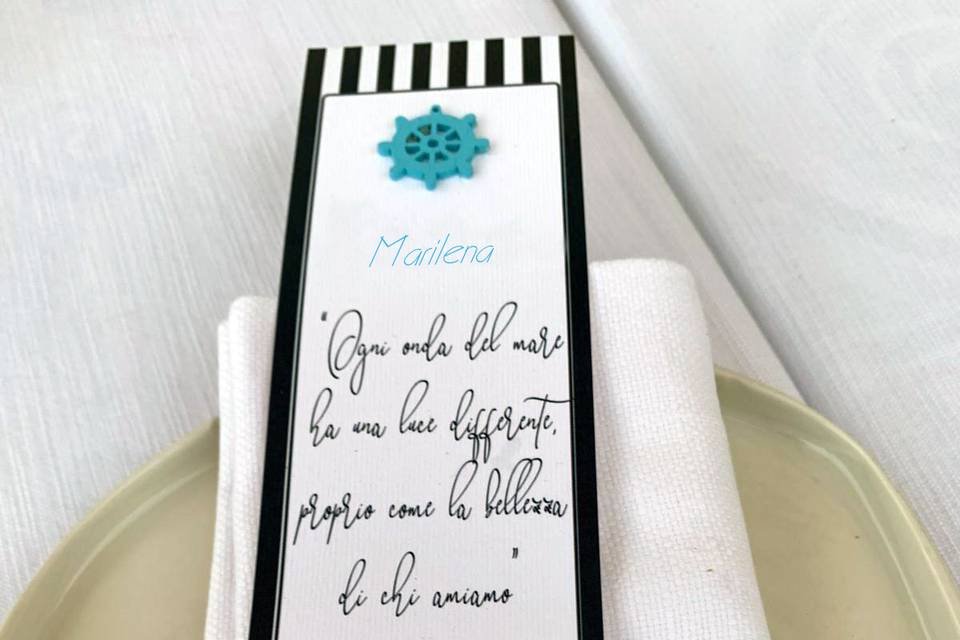 Marilena
"Ogni onda del mare
ha una luce differente,
proprio come la bellezza
di chi amiamo"